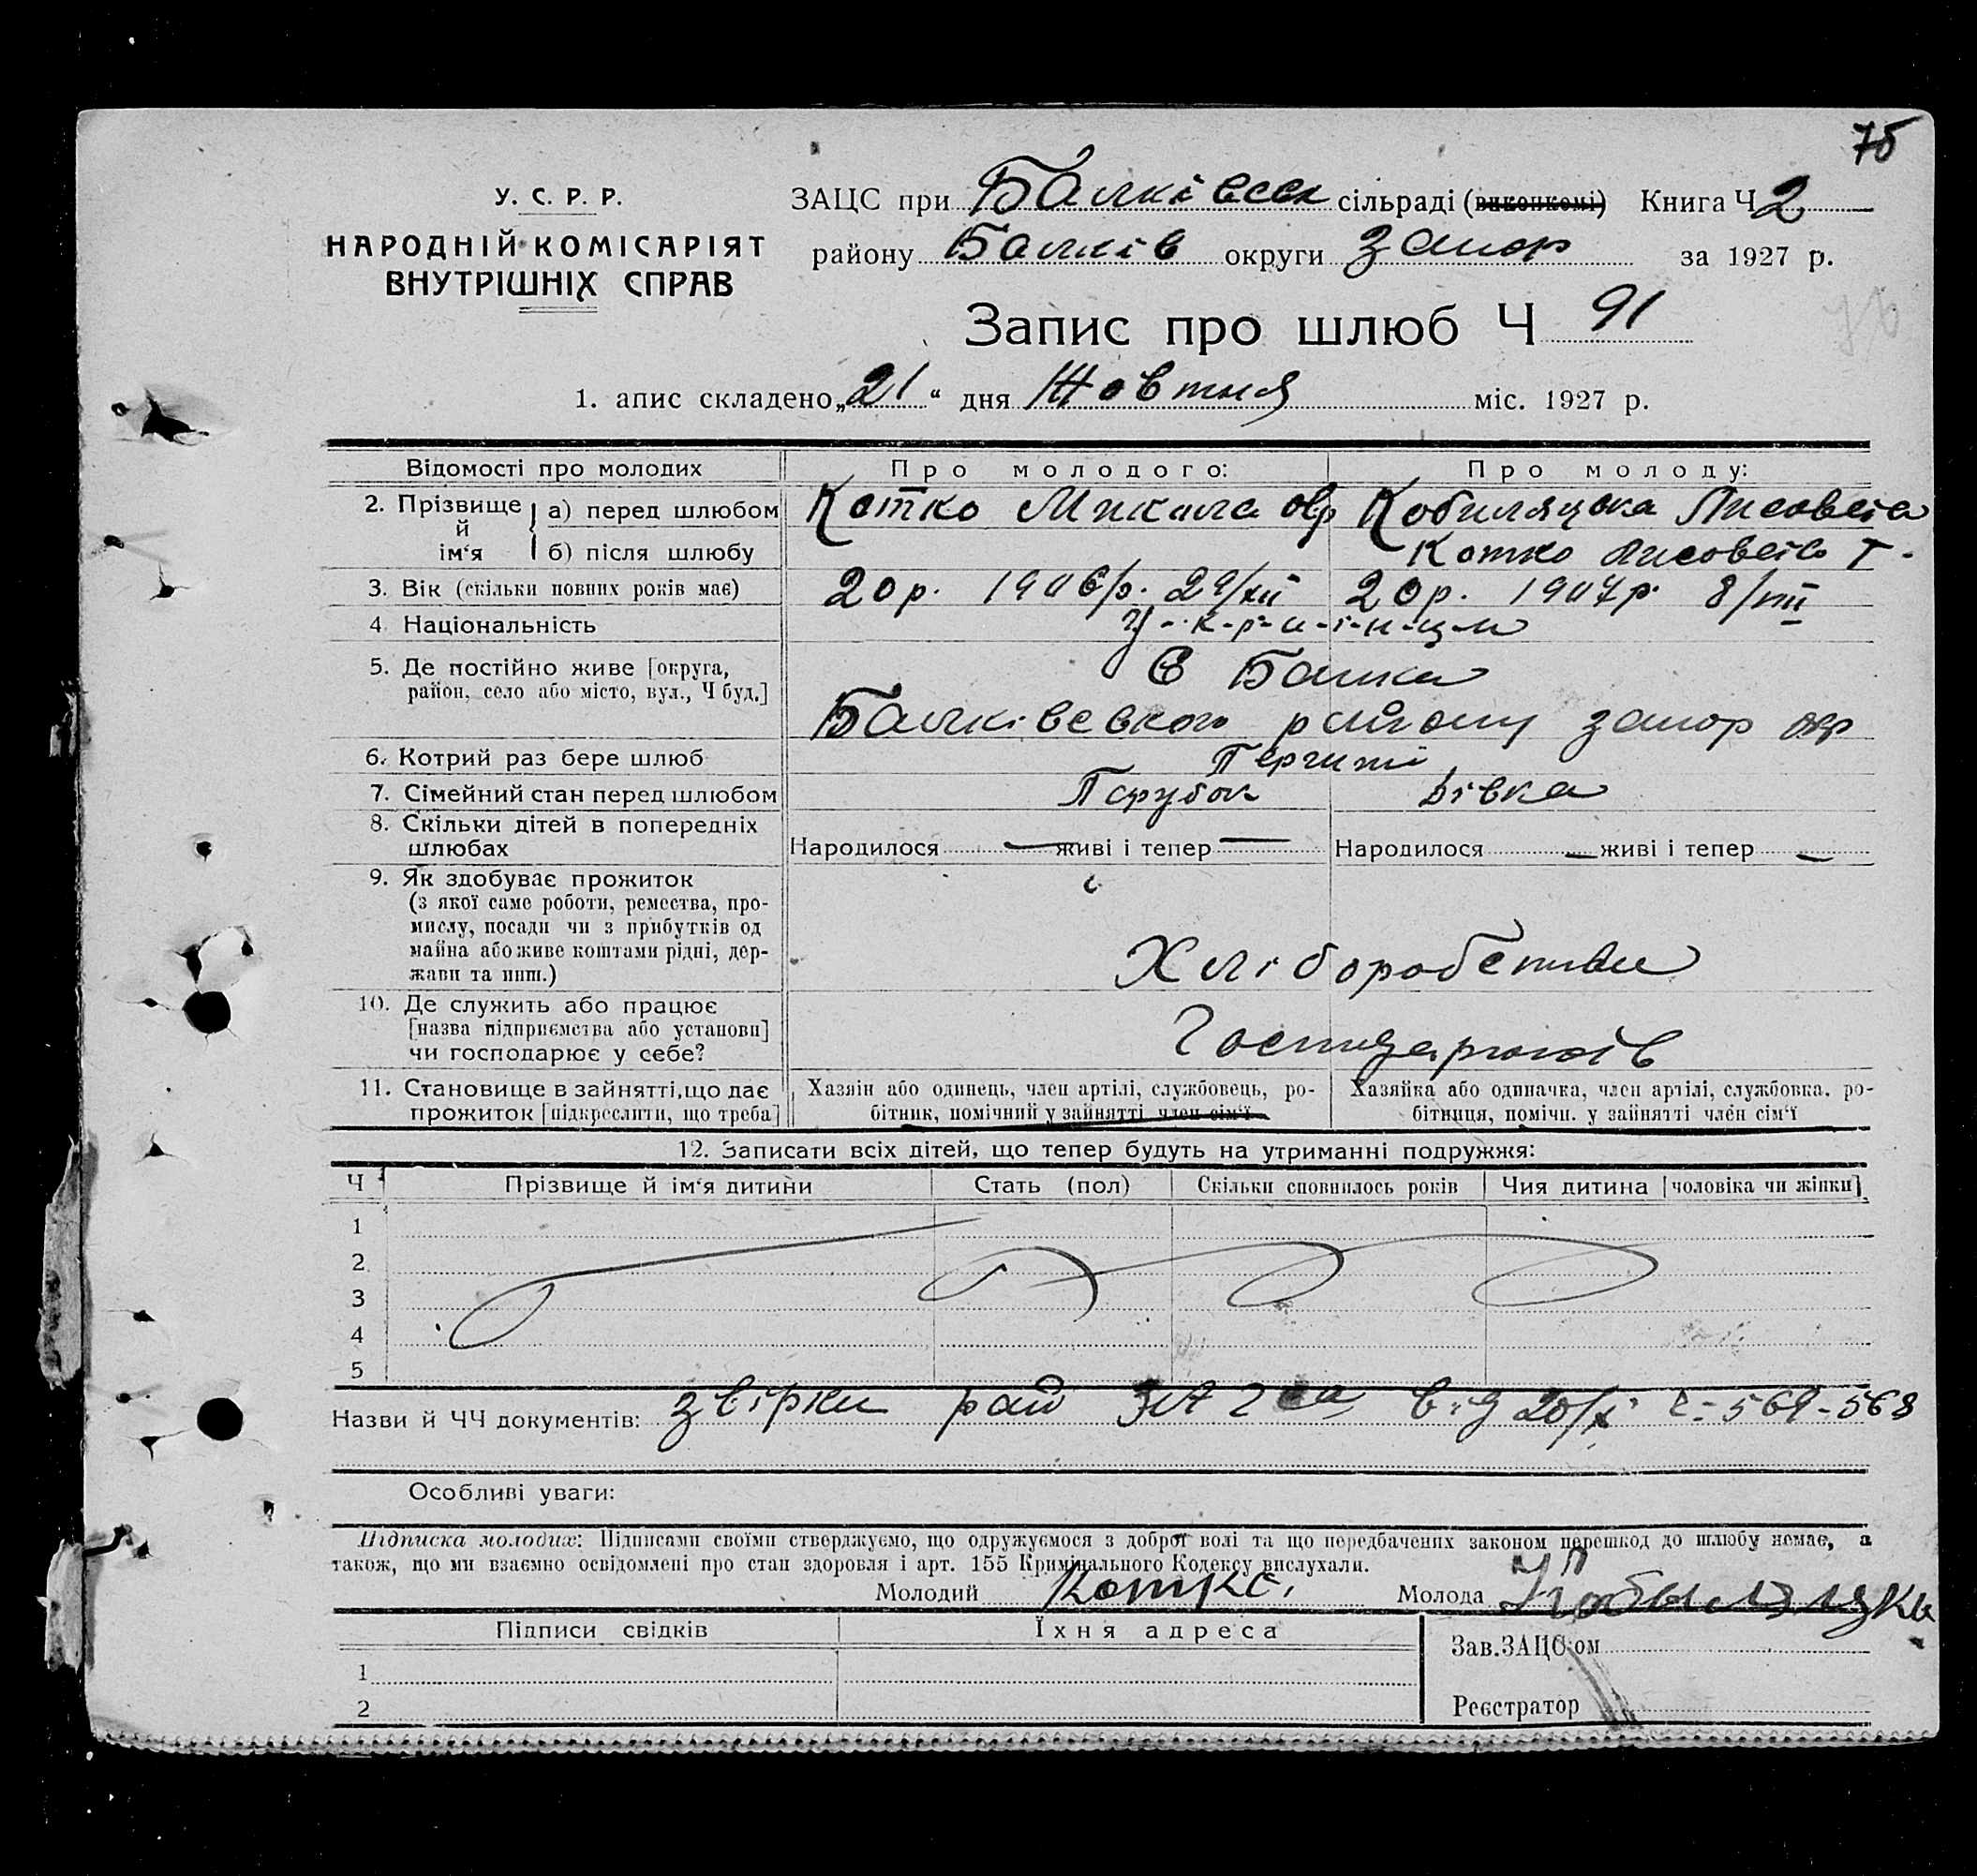 75
У. С. Р. Р.
НАРОДНІЙ КОМІСАРІЯТ
ВНУТРІШНІХ СПРАВ
ЗАЦС при Балківськ сільраді (виконкомі) Книга Ч 2
району Балків округи Запор за 1927 р.
Запис про шлюб Ч 91
1. апис складено „21“ дня Жовтня міс. 1927 р.
Відомості про молодих
Про молодого:
Про молоду:
2. Прізвище й ім‘я
а) перед шлюбом
Котко Микола
Кобиляцька Лисовета
б) після шлюбу
Котко Лисовета Т.
3. Вік (скільки повних років має)
20р. 1906/р. 29/XII
20р. 1907р. 8/VIII
4 Національність
У-к-р-а-ї-н-ц-и
5. Де постійно живе [округа,
район, село або місто, вул., Ч буд.]
С Балка
Балківського району запор окр
6. Котрий раз бере шлюб
7. Сімейний стан перед шлюбом
Парубок
Дівка
8. Скільки дітей в попередніх
шлюбах
Народилося — живі і тепер —
Народилося — живі і тепер —
9. Як здобуває прожиток
(з якої саме роботи, ремества, про-
мислу, посади чи з прибутків од
майна або живе коштами рідні, дер-
жави та инш.)
Хліборобство
10. Де служить або працює
[назва підприємства або установи]
чи господарює у себе?
11. Становище в зайнятті, що дає
прожиток [підкреслити, що треба]
Хазяїн або одинець, член артілі, службовець, ро-
бітник, помічний у зайнятті член сім‘ї
Хазяйка або одиначка, член артілі, службовка, ро-
бітниця, помічн. у зайнятті член сім‘ї
12. Записати всіх дітей, що тепер будуть на утриманні подружжя:
Ч
Прізвище й ім‘я дитини
Стать (пол)
Скільки сповнилось років
Чия дитина [чоловіка чи жінки]
1
2
3
4
5
Назви й ЧЧ документів: звірки рай від 20/X 569-568
Особливі уваги:
Підписка молодих: Підписами своїми стверджуємо, що одружуємося з доброї волі та що передбачених законом перешкод до шлюбу немає, а
також, що ми взаємно освідомлені про стан здоровля і арт. 155 Кримінального Кодексу вислухали.
Молодий Котко
Молода
Підписи свідків
Їхня адреса
1
2
Зав.ЗАЦС‘ом
Реєстратор